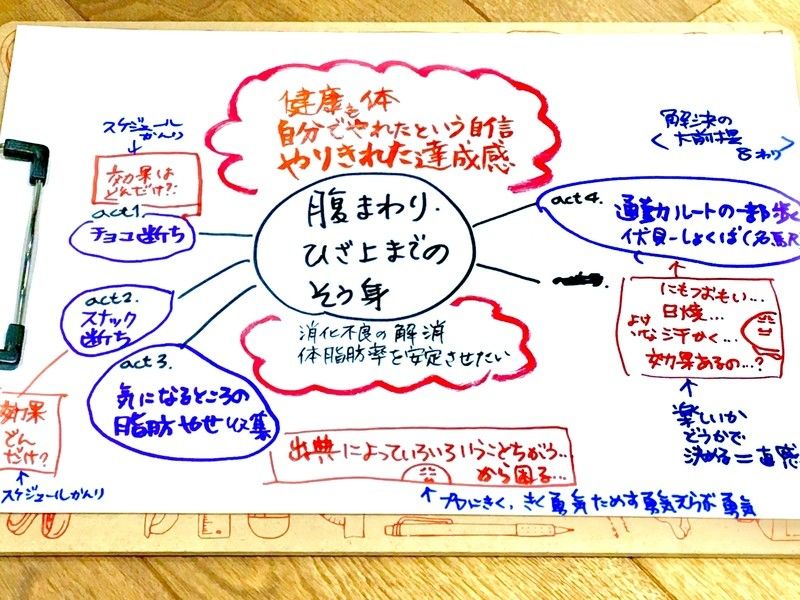 健康も体
自分でやれたという自信
やりきれた達成感
スケジュール
かんり
効果は
どんだけ?:
act1
チョコ断ち
解決の
<大前提>
腹まわり・
ひざ上までの
そう身
act4.
通勤ルートの一部歩く
伏見ーしょくば(名馬R
act2.
スナック
断ち
act3.
気になるところの
脂肪やせ
集
消化不良の解消
体脂肪率を安定させたい
にもつおもい…
日焼…
よけいな汗かく…
効果あるの…?
効果
どん
だけ?
スケジュールかんり
出典によっていろいろいうことちがう…
から困る…
楽しいか
どうかで
決める=直感
プロにきく、きく勇気ためす勇気えらぶ勇気